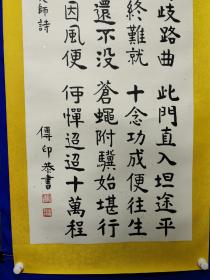 歧路曲 此門直入坦途平
終難就 十念功成便往生
還不没 蒼蠅附驥始堪行
因風便 何憚迢迢十萬程
師詩
傳印恭書